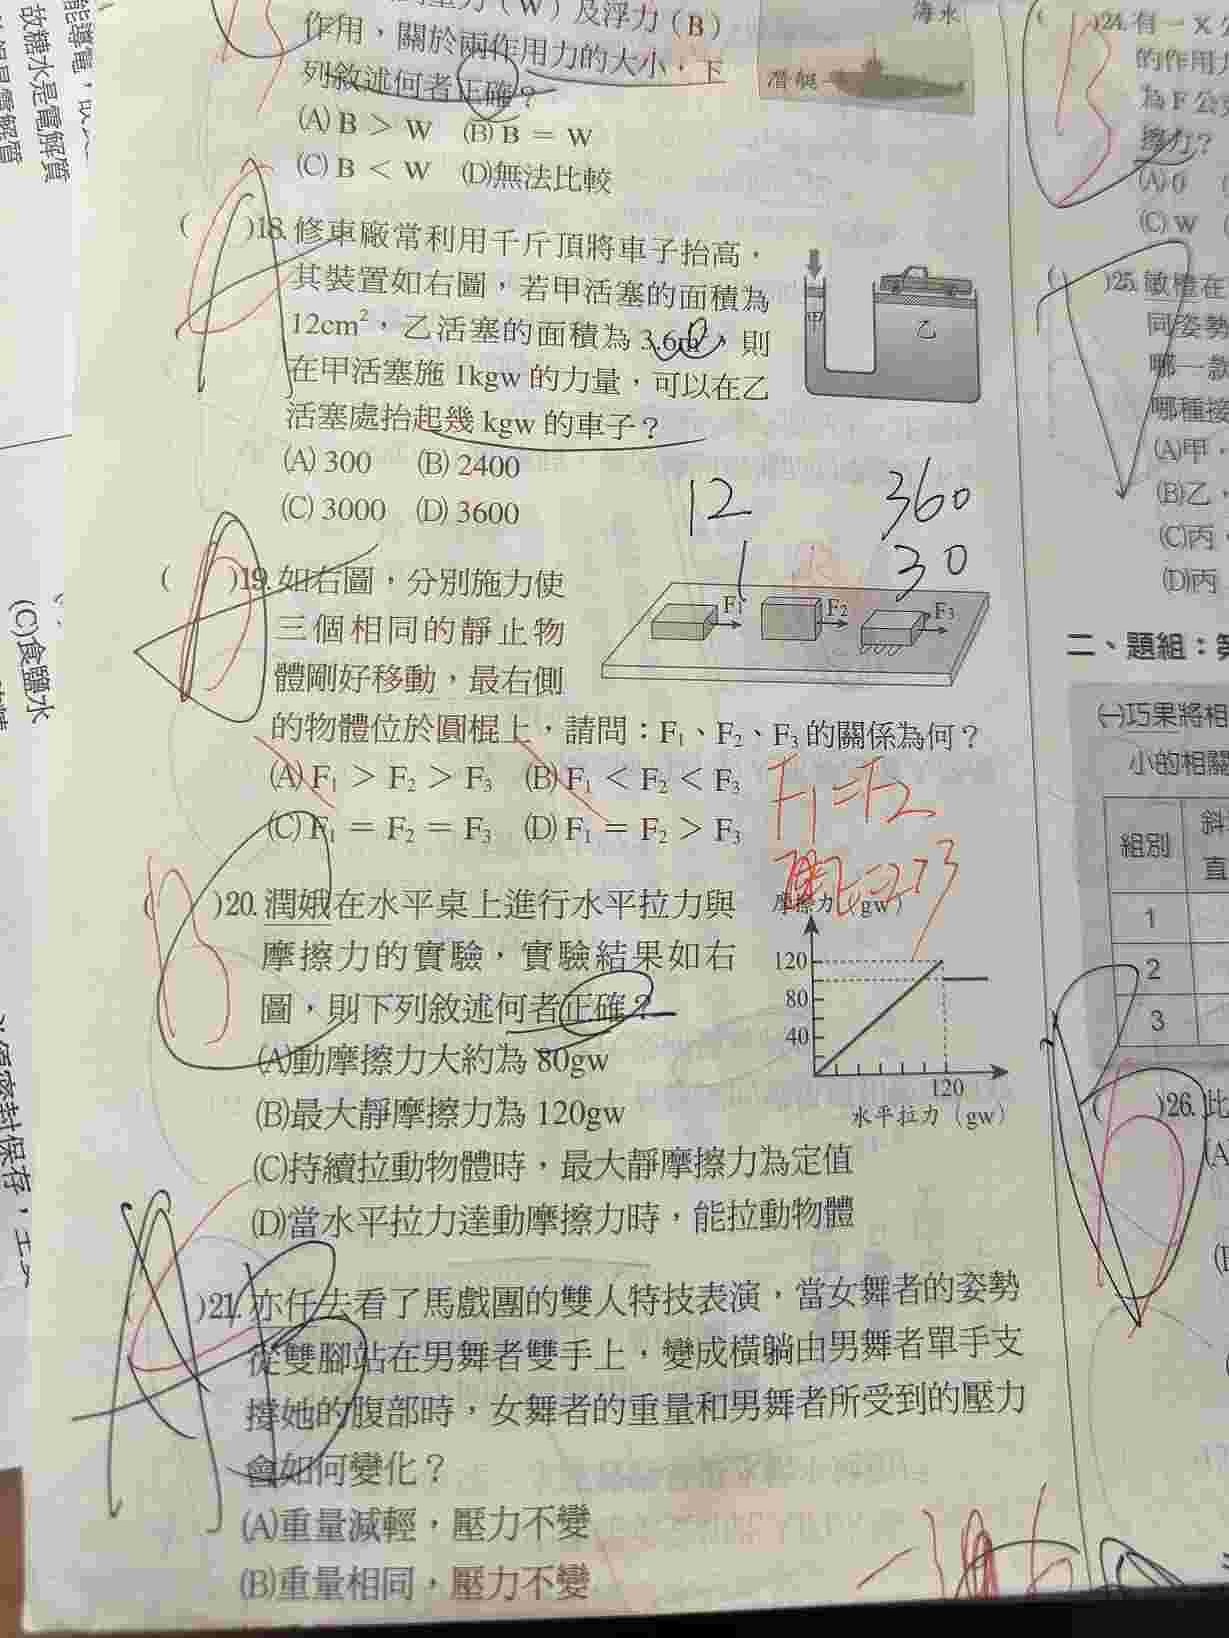 作用，關於兩作用力的大小，下
列敘述何者正確？
(A) B > W (B) B = W
(C) B < W (D)無法比較
海水
潛艇
( )18. 修車廠常利用千斤頂將車子抬高，
其裝置如右圖，若甲活塞的面積為
12cm²，乙活塞的面積為 3.6m²，則
在甲活塞施 1kgw 的力量，可以在乙
活塞處抬起幾 kgw 的車子？
(A) 300 (B) 2400
(C) 3000 (D) 3600
甲
乙
12 360
1 30
( )19. 如右圖，分別施力使
三個相同的靜止物
體剛好移動，最右側
的物體位於圓棍上，請問：F₁、F₂、F₃ 的關係為何？
(A) F₁ > F₂ > F₃ (B) F₁ < F₂ < F₃
(C) F₁ = F₂ = F₃ (D) F₁ = F₂ > F₃
F₁
F₂
F₃
F1=F2
( )20. 潤娥在水平桌上進行水平拉力與
摩擦力的實驗，實驗結果如右
圖，則下列敘述何者正確？
(A)動摩擦力大約為 80gw
(B)最大靜摩擦力為 120gw
(C)持續拉動物體時，最大靜摩擦力為定值
(D)當水平拉力達動摩擦力時，能拉動物體
摩擦力（gw）
120
80
40
120
水平拉力（gw）
( )21. 亦仟去看了馬戲團的雙人特技表演，當女舞者的姿勢
從雙腳站在男舞者雙手上，變成橫躺由男舞者單手支
撐她的腹部時，女舞者的重量和男舞者所受到的壓力
會如何變化？
(A)重量減輕，壓力不變
(B)重量相同，壓力不變
( )24. 有一 X
的作用力
為 F 公
擦力？
(A) 0
(C) W
( )25. 敏橙在
同姿勢
哪一款
哪種接
(A)甲，
(B)乙
(C)丙
(D)丙
二、題組：第
㈠巧果將相
小的相關
組別
斜
直
1
2
3
( )26. 比
故糖水是電解質
(C)食鹽水